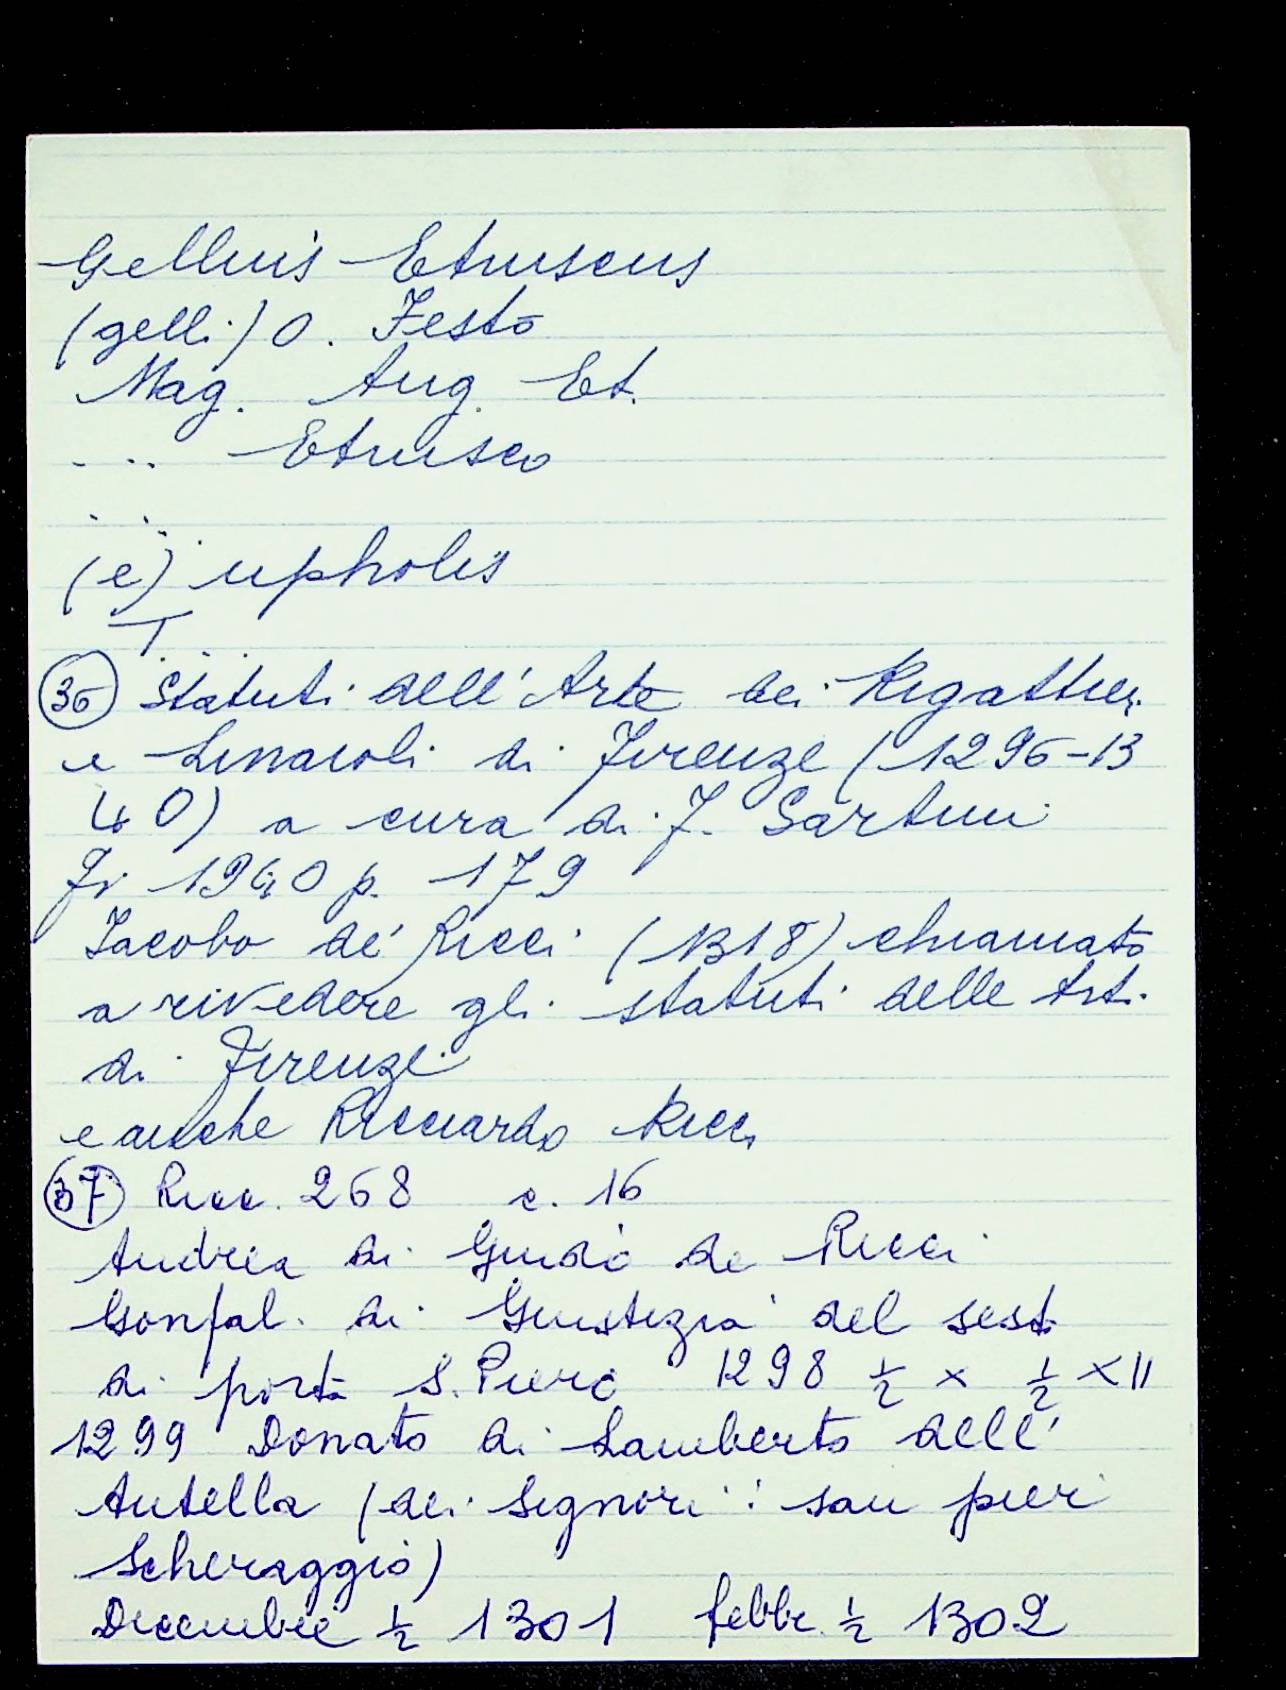 Gellius Etruscus
(gelli) O. Festo
Mag. Aug. Et.
... Etrusco
...
(e) upholis
T...
36 Statuti dell'Arte dei Rigattieri
e Linaioli di Firenze (1296-13
40) a cura di F. Sartini
Fi 1940 p. 179
Iacobo de' Ricci (1318) chiamato
a rivedere gli statuti delle Arti
di Firenze
e anche Ricciardo Ricci
37 Ricc. 268 c. 16
Andrea di Guido de Ricci
Gonfal. di Giustizia del sest.
di porta S. Piero 1298 ½ X ½ XII
1299 Donato di Lamberto dell'
Antella (dei Signori: san pier
Scheraggio)
Dicembre ½ 1301 febbr. ½ 1302